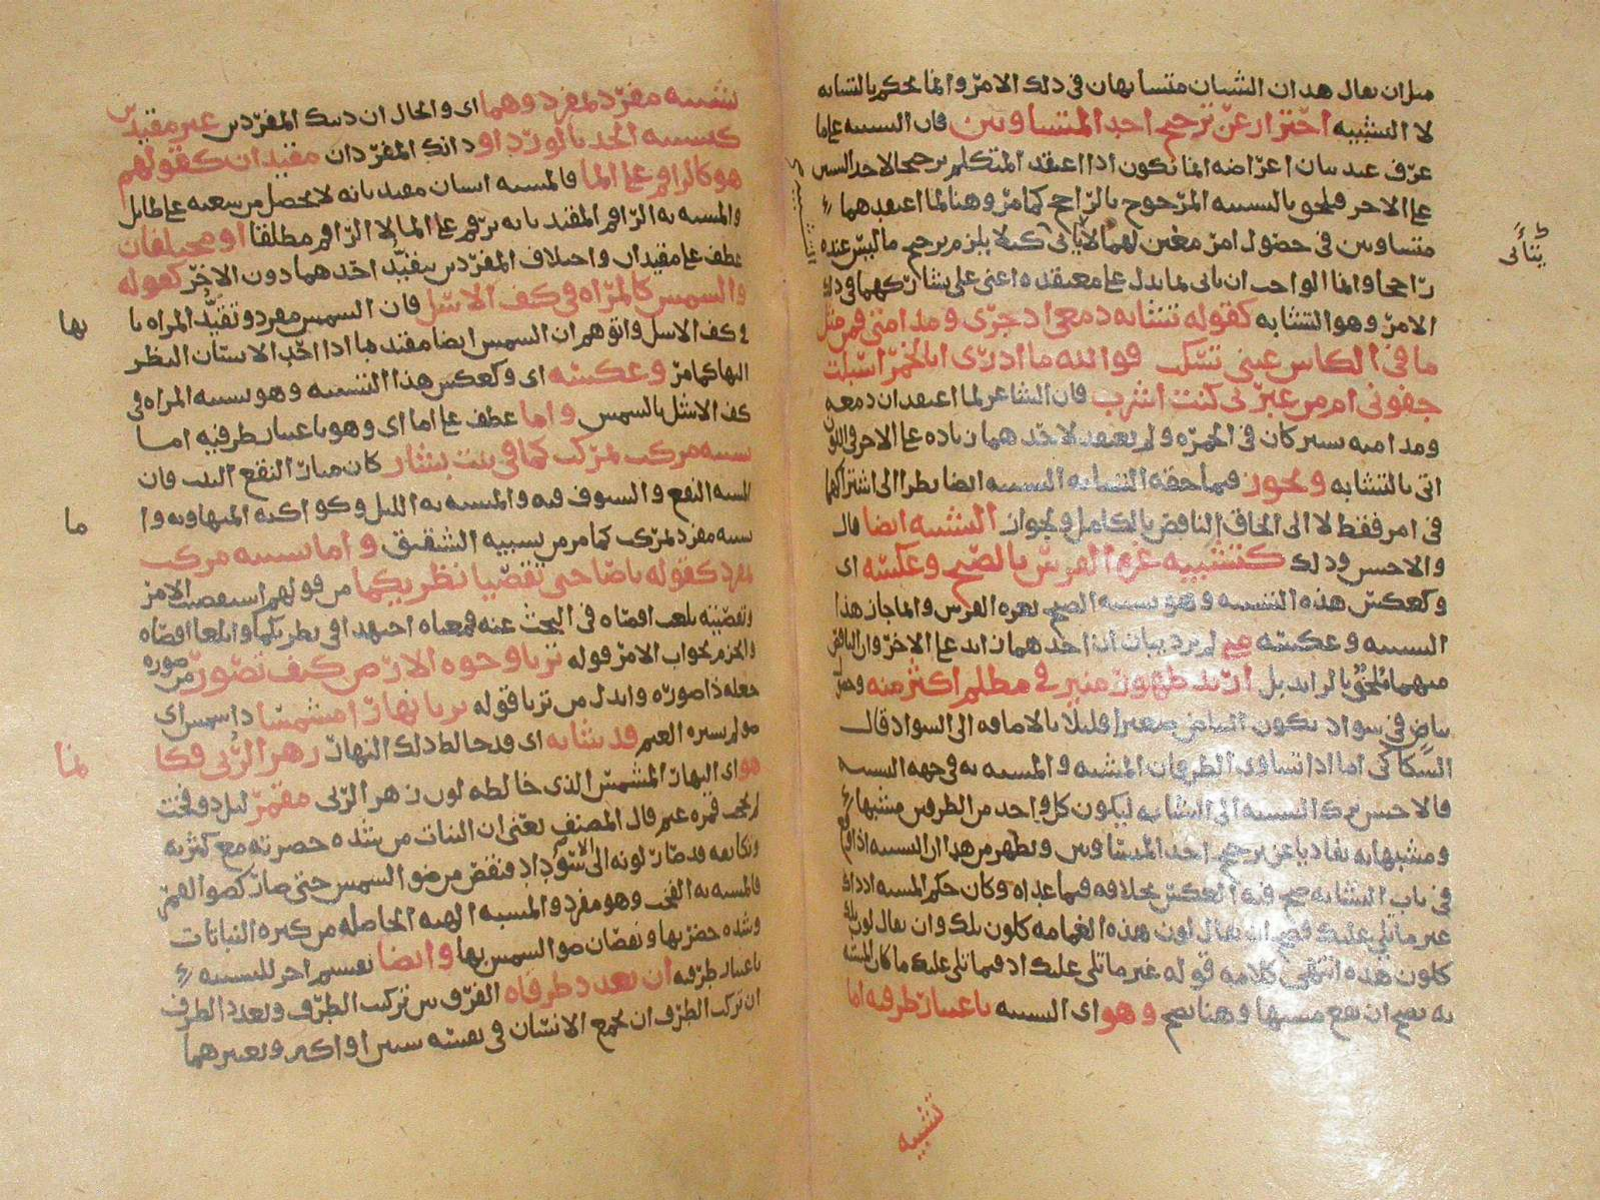 مثل ان يقال هذان الشيئان متشابهان في ذلك الامر وانما يحكم بالتشابه
لا التشبيه احترازا عن ترجيح احد المتساويين فان التشبيه على ما
عرف عند بيان اغراضه انما يكون اذا اعتقد المتكلم ترجيحا لاحد الشيئين
على الاخر فيلحق بالتشبيه المرجوح بالراجح كما مر وهنا لما اعتقدهما
متساويين في حصول امر معين لهما لا يأتي كيلا يلزم ترجيح ما ليس عنده
راجحا وانما الواجب ان ياتي بما يدل على معتقده اعني على تشاركهما في ذلك
الامر وهو التشابه كقوله تشابه دمعي اذ جرى ومدامتي فمن مثل
ما في الكاس عيني تسكب فوالله ما ادرى ابالخمر اسبلت
جفوني ام من عبرتي كنت اشرب فان الشاعر لما اعتقد ان دمعه
ومدامته سيركان في الحمرة ولم يعتقد لاحدهما زيادة على الاخر في اللون
اتى بالتشابه ويجوز فيما حقه التشابه التشبيه ايضا نظرا الى اشتراكهما
في امر فقط لا الى الحاق الناقص بالكامل ويجوز التشبيه ايضا قال
والاحسن وذلك كتشبيه غرة الفرس بالصبح وعكسه اى
وكعكس هذه التشبيه وهو تشبيه الصبح بغرة الفرس وانما جاز هذا
التشبيه وعكسه متى لم يرد بيان ان احدهما زايد على الاخر وان الناقص
منهما يلحق بالزايد بل اريد ظهور منير في مظلم اكثر منه وحصول
بياض في سواد يكون البياض صغيرا قليلا بالاضافه الى السواد قال
السكاكي اما اذا تساوى الطرفان المشبه والمشبه به في جهه التشبيه
فالاحسن ترك التشبيه الى التشابه ليكون كل واحد من الطرفين مشبها
ومشبها به تفاديا عن ترجيح احد المتساويين ويظهر من هذا ان التشبيه اذا وقع
في باب التشابه صح فيه العكس بخلافه فيما عداه وكان حكم المشبه اذ ذاك
غير ما تلي عليك فصح ان يقال لون هذه الغمامه كلون تلك وان يقال لون تلك
كلون هذه انتهى كلامه قوله غير ما تلي عليك اذ فيما تلي عليك ما كان المشبه
به يصح ان يقع مشبها وهنا يصح وهو اى التشبيه باعتبار طرفيه اما
تشبيه
تشبيه مفرد لمفرد وهما اى والحال ان ذينك المفردين غير مقيدين
كتشبيه الخد بالورد او ذانك المفردان مقيدان كقولهم
هو كالراقم على الما فالمشبه انسان مقيد بانه لا يحصل من سعيه على طايل
والمشبه به الراقم المقيد بانه يرقم على الما لا الراقم مطلقا او مختلفان
عطف على مقيدان واختلاف المفردين بتقيد احدهما دون الاخر كقوله
والشمس كالمراه في كف الاشل فان الشمس مفرد وتقيد المراه با
في كف الاشل واتوهم ان الشمس ايضا مقيد بها اذا احد الانسان النظر
اليها كما مر وعكسه اى وكعكس هذا التشبيه وهو تشبيه المراه في
كف الاشل بالشمس واما عطف على اما اى وهو باعتبار طرفيه اما
تشبيه مركب لمركب كما في بيت بشار كان مثار النقع البيت فان
المشبه النقع والسيوف فيه والمشبه به الليل وكواكبه المتهاويه وا
تشبيه مفرد لمركب كما مر من تشبيه الشقيق واما تشبيه مركب
لمفرد كقوله ياصاحبى تقصيا نظريكما من قولهم استقصيت الامر
وتقصيته بلغت اقصاه في البحث عنه فمعناه اجتهدا في نظريكما وابلغا اقصاه
والجزم بجواب الامر قوله تريا وجوه الارض كيف تصور من صوره
جعله ذا صوره وابدل من تريا قوله تريا نهارا مشمسا ذا شمس اى
ضو لم يستره الغيم قد شابه اى قد خالط ذلك النهار زهر الربى فكا
هو اى النهار المشمس الذى خالطه لون زهر الربى مقمر ليل ذو قمر
لم يخف قمره غيم قال المصنف يعنى ان النبات من شده خضرته مع كثرته
وتكاثفه قد صار لونه الى الاسوداد فنقص من ضو الشمس حتى صار كضو القمر
فالمشبه به القمر وهو مفرد والمشبه الهيه الحاصله من كثره النباتات
وشده خضرتها ونقصان ضو الشمس بها وايضا تقسيم اخر للتشبيه
باعتبار طرفيه ان تعدد طرفاه الفرق بين تركيب الطرف وتعدد الطرف
ان تركب الطرف ان يجمع الانسان في نفسه شيئين او اكثر ويعتبرهما
بها
ما
نما